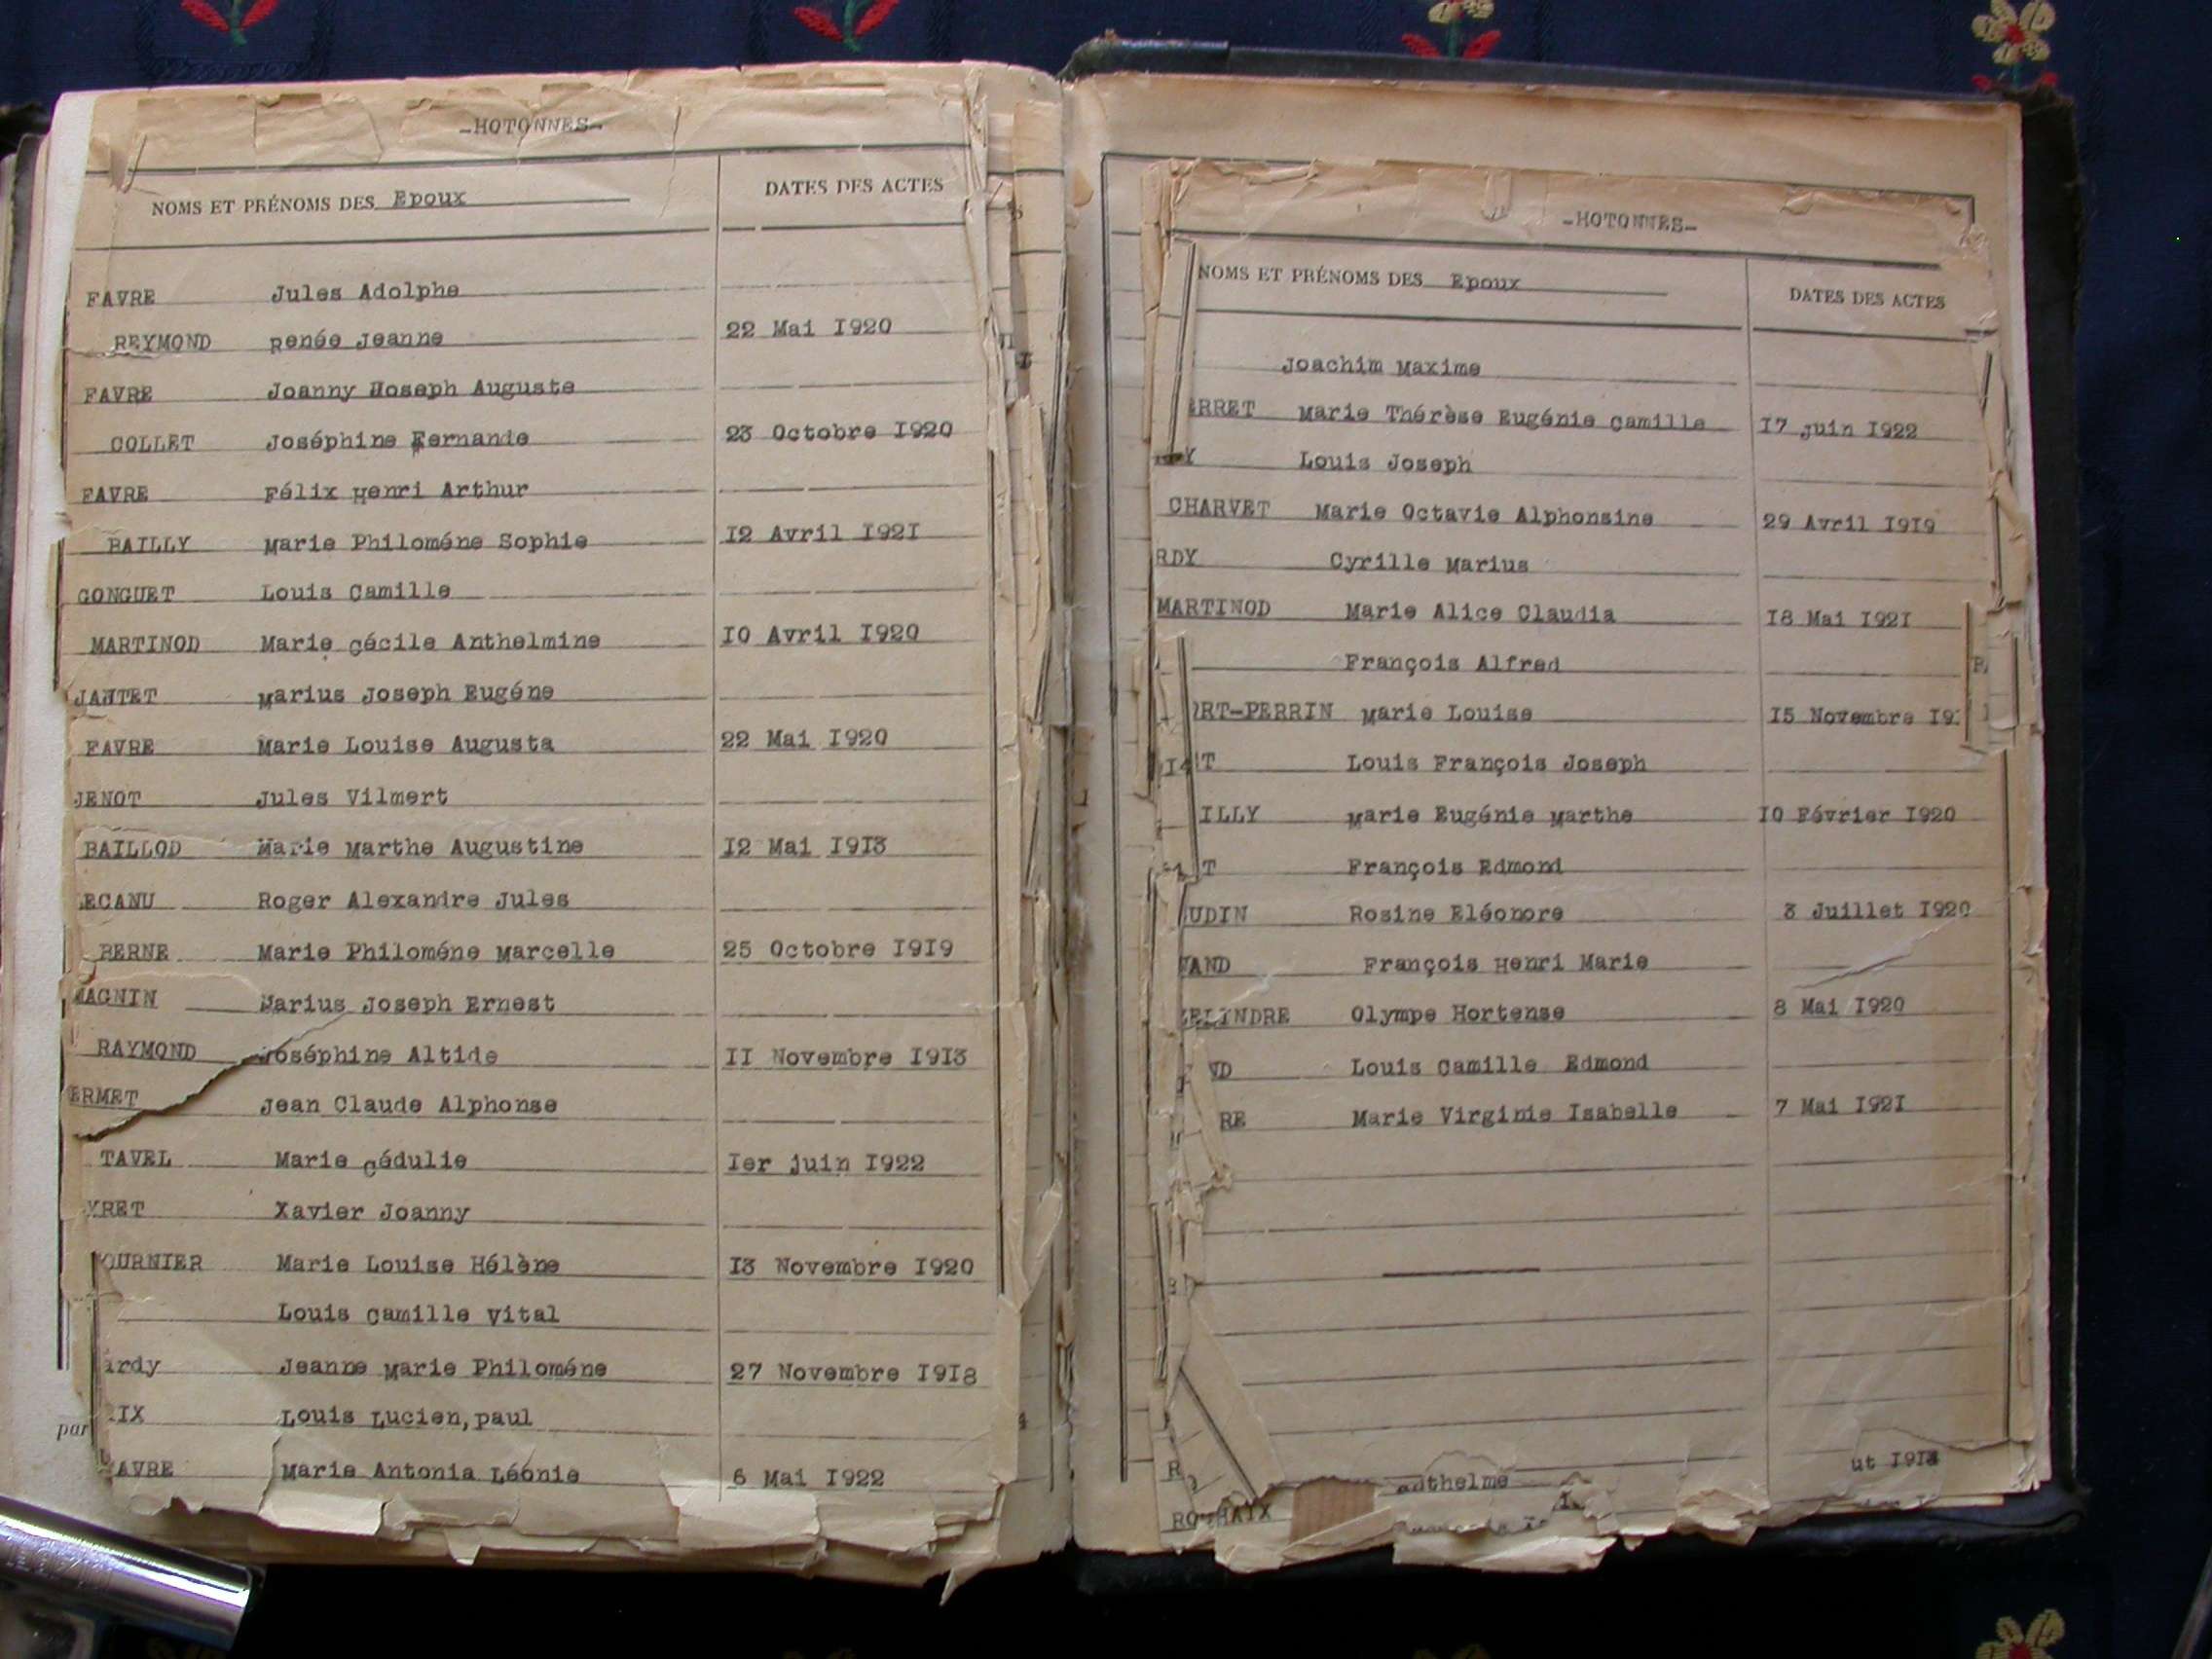 -HOTONNES-
NOMS ET PRÉNOMS DES Epoux DATES DES ACTES
FAVRE Jules Adolphe
REYMOND Renée Jeanne 22 Mai I920
FAVRE Joanny Hoseph Auguste
COLLET Joséphine Fernande 23 Octobre I920
FAVRE Félix Henri Arthur
BAILLY Marie Philoméne Sophie I2 Avril I92I
GONGUET Louis Camille
MARTINOD Marie Cécile Anthelmine I0 Avril I920
JANTET Marius Joseph Eugéne
FAVRE Marie Louise Augusta 22 Mai I920
JENOT Jules Vilmert
BAILLOD Marie Marthe Augustine I2 Mai I9I3
ECANU Roger Alexandre Jules
BERNE Marie Philoméne Marcelle 25 Octobre I9I9
MAGNIN Marius Joseph Ernest
RAYMOND Joséphine Altide II Novembre I9I3
ERMET Jean Claude Alphonse
TAVEL Marie Cédulie Ier juin I922
YRET Xavier Joanny
OURNIER Marie Louise Hélène I3 Novembre I920
Louis Camille Vital
ardy Jeanne Marie Philoméne 27 Novembre I9I8
IX Louis Lucien,paul
par
AVRE Marie Antonia Léonie 6 Mai I922
-HOTONNES-
NOMS ET PRÉNOMS DES Epoux DATES DES ACTES
Joachim Maxime
ERRET Marie Thérèse Eugénie Camille I7 juin I922
Y Louis Joseph
CHARVET Marie Octavie Alphonsine 29 Avril I9I9
RDY Cyrille Marius
MARTINOD Marie Alice Claudia I8 Mai I92I
François Alfred
RT-PERRIN Marie Louise I5 Novembre I9
T Louis François Joseph
ILLY Marie Eugénie Marthe I0 Février I920
T François Edmond
UDIN Rosine Eléonore 3 Juillet I920
AND François Henri Marie
ELINDRE Olympe Hortense 8 Mai I920
ND Louis Camille Edmond
RE Marie Virginie Isabelle 7 Mai I92I
R nthelme ut I9I3